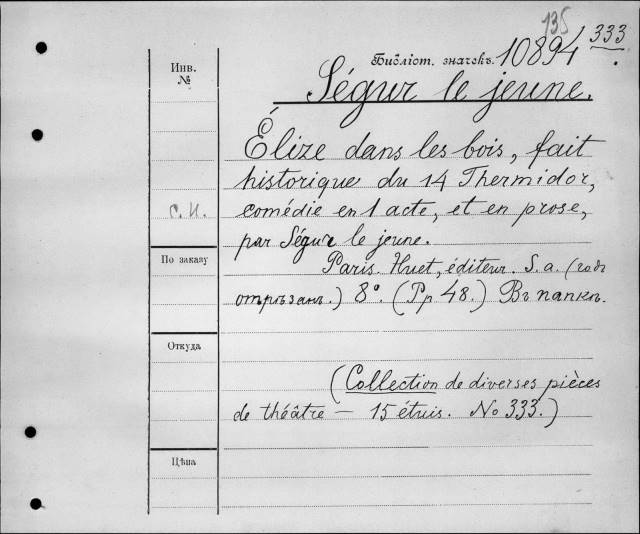 135
333
Библіот. значекъ. 10894
Инв.
№
Ségur le jeune.
Élize dans les bois, fait
historique du 14 Thermidor,
с.и.
comédie en 1 acte, et en prose,
par Ségur le jeune.
По заказу
Paris. Huet, éditeur. S. a. (годъ
отрѣзанъ.) 8°. (Pp 48.) Въ папкѣ.
Откуда
(Collection de diverses pièces
de théâtre — 15 étuis. No 333.)
Цѣна